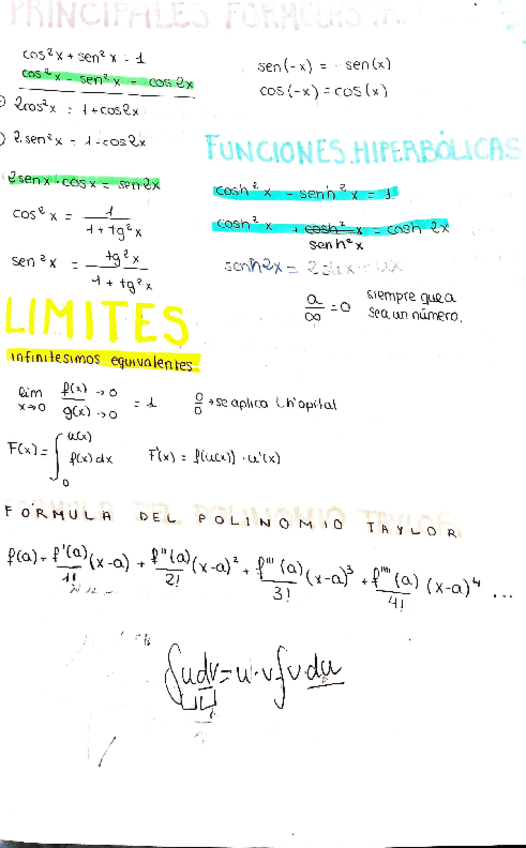 PRINCIPALES FORMULAS
cos²x + sen²x = 1
cos²x - sen²x = cos2x
2cos²x = 1+cos2x
2.sen²x = 1-cos2x
2senx·cosx = sen2x
cos²x = 1/(1+tg²x)
sen²x = tg²x/(1+tg²x)
sen(-x) = -sen(x)
cos(-x)=cos(x)
FUNCIONES.HIPERBÓLICAS
cosh²x - senh²x = 1
cosh²x + cosh²x = cosh 2x
senh²x
senh2x =
a/∞ = 0 siempre que a
sea un número.
LIMITES
infinitesimos equivalentes
lim x→0 f(x)→0 / g(x)→0 = 1 0/0 → se aplica L'hopital
F(x) = ∫₀^{u(x)} f(x)dx F'(x) = f(u(x))·u'(x)
FÓRMULA DEL POLINOMIO TAYLOR
f(a) + f'(a)/1! (x-a) + f''(a)/2! (x-a)² + f'''(a)/3! (x-a)³ + f''''(a)/4! (x-a)⁴ ...
∫udv = u·v ∫v·du